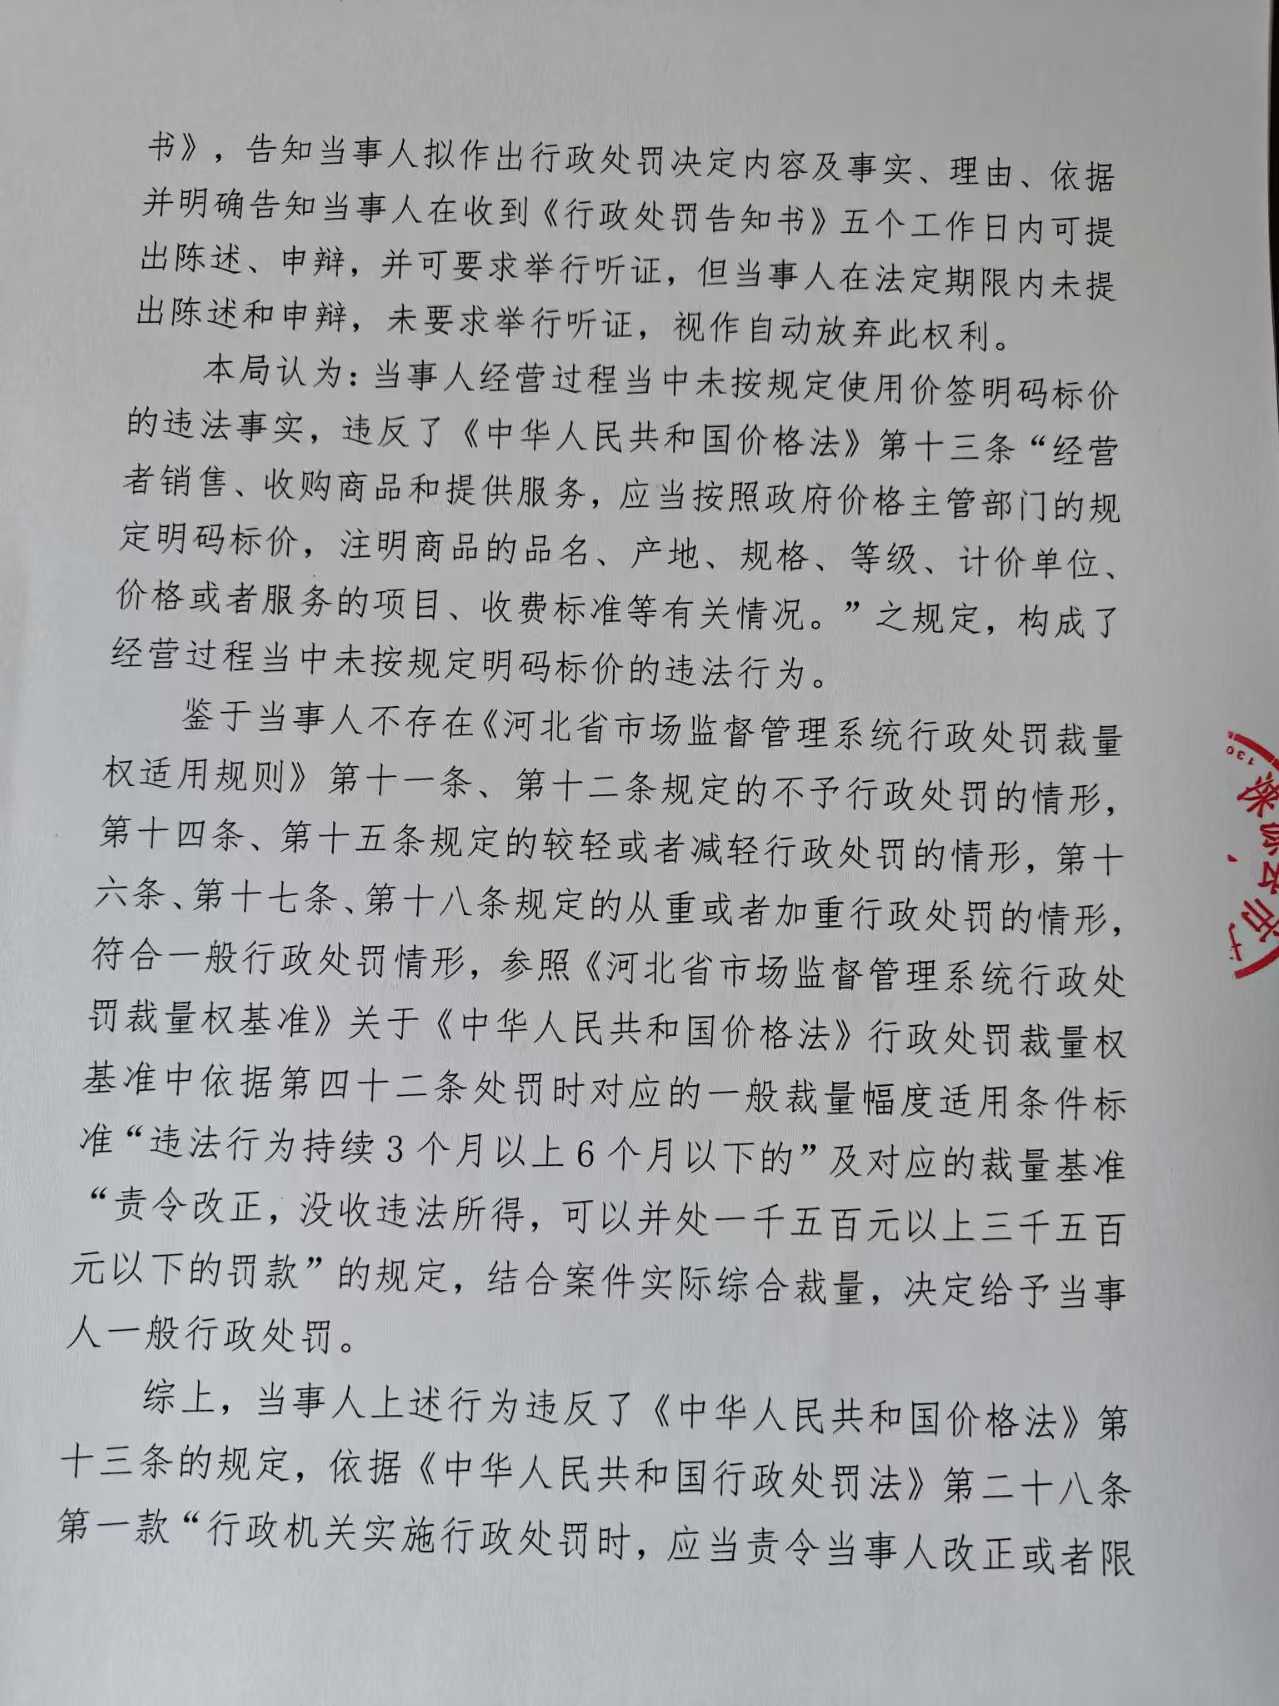 书》，告知当事人拟作出行政处罚决定内容及事实、理由、依据
并明确告知当事人在收到《行政处罚告知书》五个工作日内可提
出陈述、申辩，并可要求举行听证，但当事人在法定期限内未提
出陈述和申辩，未要求举行听证，视作自动放弃此权利。
本局认为：当事人经营过程当中未按规定使用价签明码标价
的违法事实，违反了《中华人民共和国价格法》第十三条“经营
者销售、收购商品和提供服务，应当按照政府价格主管部门的规
定明码标价，注明商品的品名、产地、规格、等级、计价单位、
价格或者服务的项目、收费标准等有关情况。”之规定，构成了
经营过程当中未按规定明码标价的违法行为。
鉴于当事人不存在《河北省市场监督管理系统行政处罚裁量
权适用规则》第十一条、第十二条规定的不予行政处罚的情形，
第十四条、第十五条规定的较轻或者减轻行政处罚的情形，第十
六条、第十七条、第十八条规定的从重或者加重行政处罚的情形，
符合一般行政处罚情形，参照《河北省市场监督管理系统行政处
罚裁量权基准》关于《中华人民共和国价格法》行政处罚裁量权
基准中依据第四十二条处罚时对应的一般裁量幅度适用条件标
准“违法行为持续3个月以上6个月以下的”及对应的裁量基准
“责令改正，没收违法所得，可以并处一千五百元以上三千五百
元以下的罚款”的规定，结合案件实际综合裁量，决定给予当事
人一般行政处罚。
综上，当事人上述行为违反了《中华人民共和国价格法》第
十三条的规定，依据《中华人民共和国行政处罚法》第二十八条
第一款“行政机关实施行政处罚时，应当责令当事人改正或者限
130